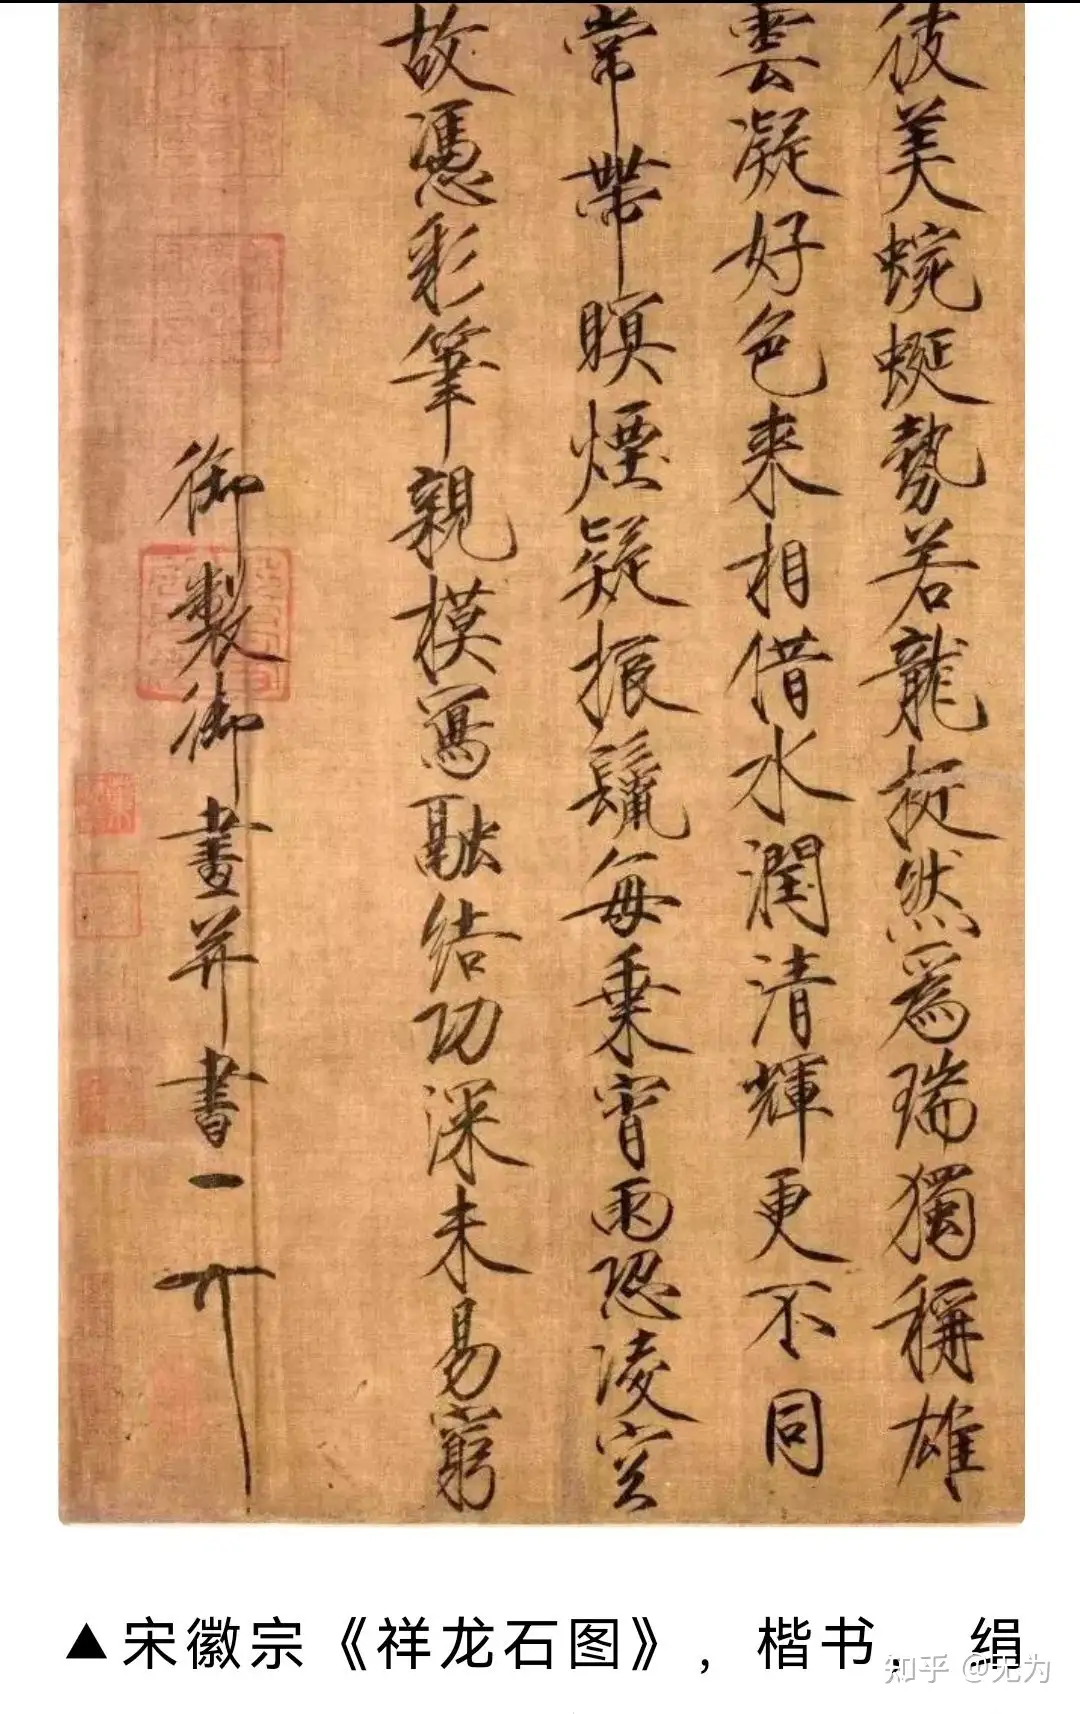 彼美蜿蜒勢若龍挺然為瑞獨稱雄
雲凝好色來相借水潤清輝更不同
常帶暝煙疑振鬣每乘宵雨恐凌空
故憑彩筆親模寫融結功深未易窮
御製御畫并書
▲宋徽宗《祥龙石图》，楷书，绢
知乎 @无为